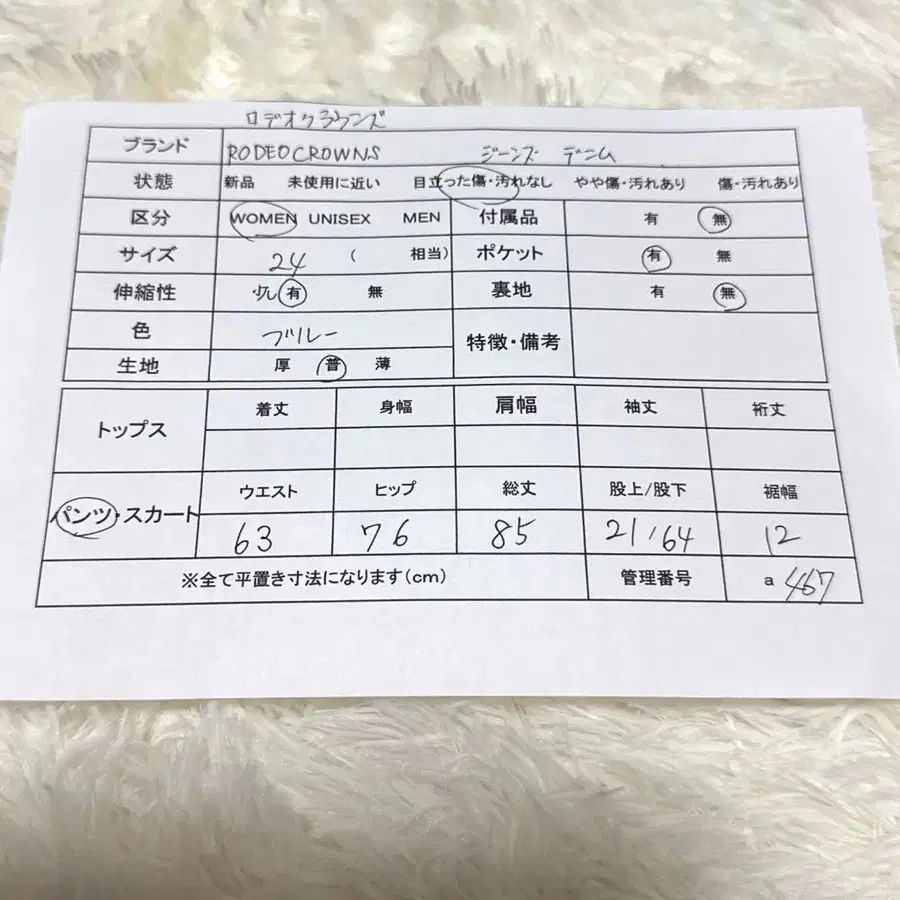 ロデオクラウンズ
ブランド RODEO CROWNS ジーンズ デニム
状態 新品 未使用に近い 目立った傷・汚れなし やや傷・汚れあり 傷・汚れあり
区分 WOMEN UNISEX MEN 付属品 有 無
サイズ 24 ( 相当) ポケット 有 無
伸縮性 少し 有 無 裏地 有 無
色 ブルー 特徴・備考
生地 厚 普 薄
トップス 着丈 身幅 肩幅 袖丈 裄丈
パンツ・スカート ウエスト ヒップ 総丈 股上/股下 裾幅
63 76 85 21/64 12
※全て平置き寸法になります(cm) 管理番号 a 467